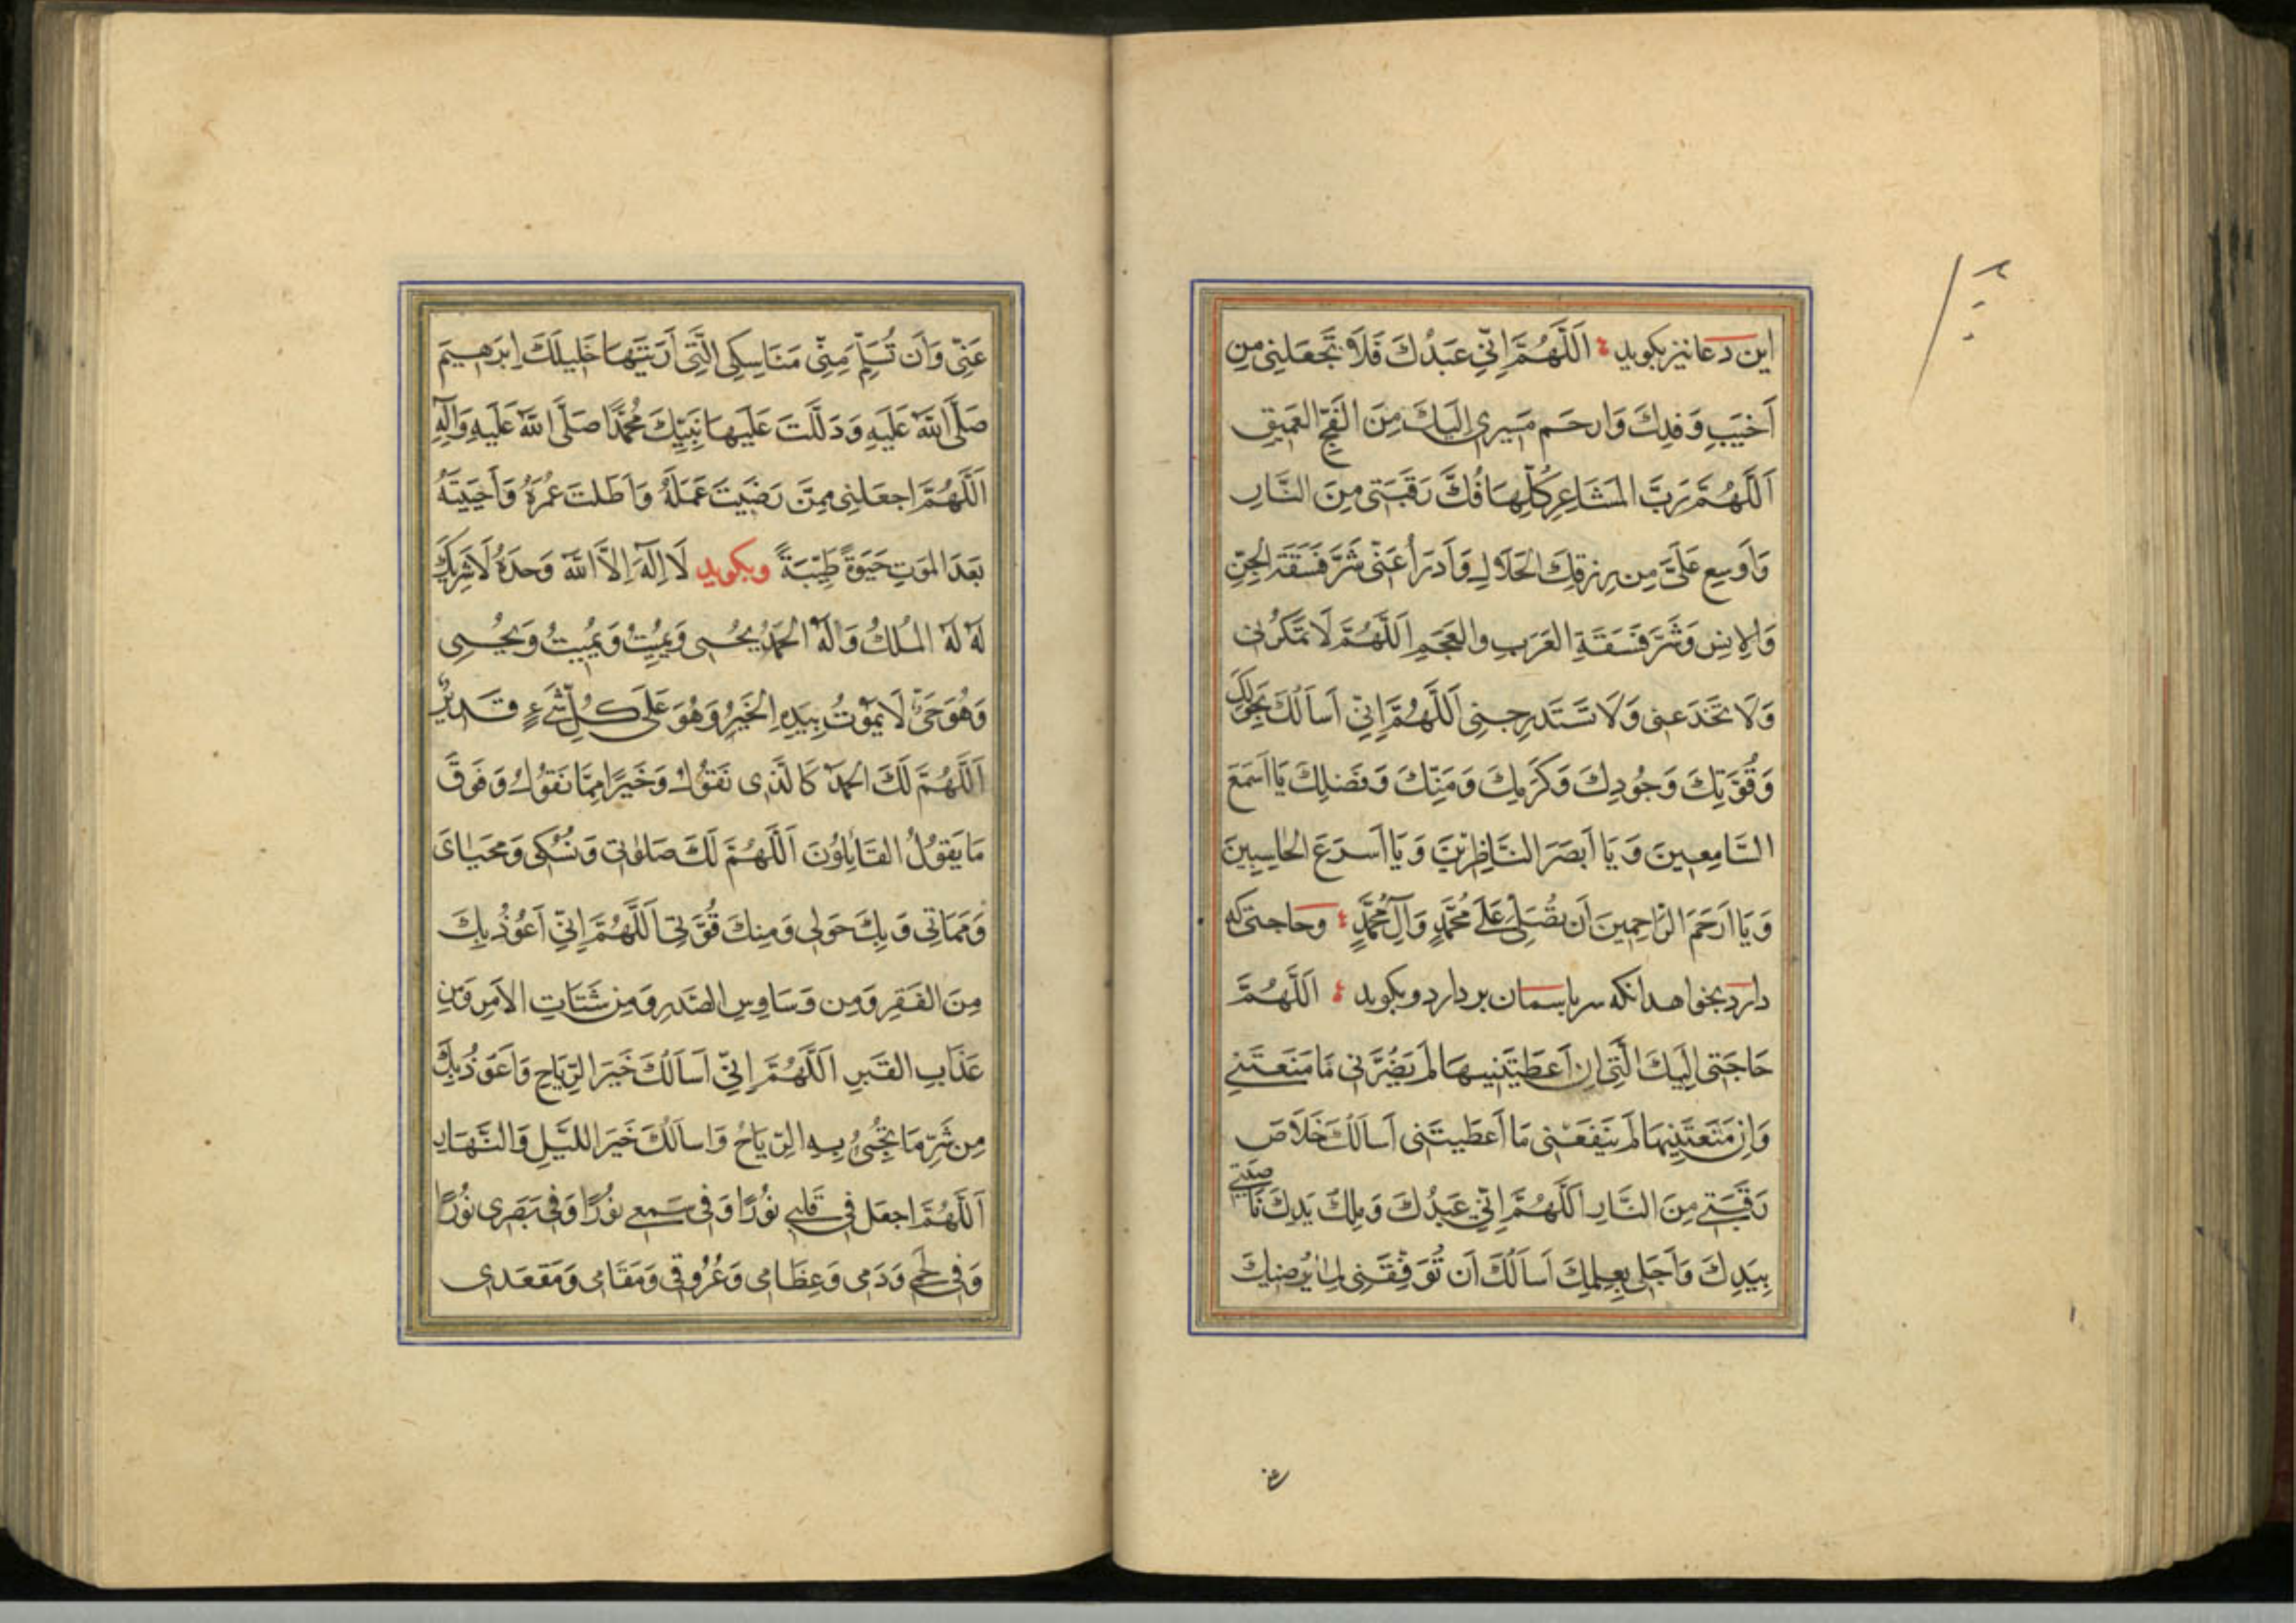 این دعا نیز بکوید اَللّٰهُمَّ اِنّی عَبْدُكَ فَلَا تَجْعَلْنِی مِن
اَخیَبِ وَفدِكَ وَارحَم مَسیری اِلَیكَ مِنَ الفَجِّ العَمیقِ
اَللّٰهُمَّ رَبَّ المَشَاعِرِ کُلِّهَا فُكَّ رَقَبَتی مِنَ النَّارِ
وَاَوسِع عَلَیَّ مِن رِزقِكَ الحَلَالِ وَادرَأ عَنّی شَرَّ فَسَقَةِ الجِنِّ
وَالاِنسِ وَشَرَّ فَسَقَةِ العَرَبِ وَالعَجَمِ اَللّٰهُمَّ لَا تَمکُر بی
وَلَا تَخدَعنی وَلَا تَستَدرِجنِی اَللّٰهُمَّ اِنّی اَسأَلُكَ بِحَولِكَ
وَقُوَّتِكَ وَجُودِكَ وَکَرَمِكَ وَمَنِّكَ وَفَضلِكَ یَا اَسمَعَ
السَّامِعینَ وَیَا اَبصَرَ النَّاظِرینَ وَیَا اَسرَعَ الحَاسِبینَ
وَیَا اَرحَمَ الرَّاحِمینَ اَن تُصَلِّیَ عَلٰی مُحَمَّدٍ وَآلِ مُحَمَّدٍ وحاجتی که
دارد بخواهد انکه سر باسمان بردارد و بکوید اَللّٰهُمَّ
حَاجَتی اِلَیكَ الَّتی اِن اَعطَیتَنیهَا لَم یَضُرَّنی مَا مَنَعتَنی
وَاِن مَنَعتَنیهَا لَم یَنفَعنی مَا اَعطَیتَنی اَسأَلُكَ خَلَاصَ
رَقَبَتی مِنَ النَّارِ اَللّٰهُمَّ اِنّی عَبدُكَ وَمِلكُ یَدِكَ نَاصِیَتی
بِیَدِكَ وَاَجَلی بِعِلمِكَ اَسأَلُكَ اَن تُوَفِّقَنی لِمَا یُرضیكَ
عَنّی وَاَن تُسَلِّمَ مِنّی مَنَاسِکِی الَّتی اَرَیتَهَا خَلیلَكَ اِبرٰهیمَ
صَلَّی اللّٰهُ عَلَیهِ وَدَلَّلتَ عَلَیهَا نَبِیَّكَ مُحَمَّدًا صَلَّی اللّٰهُ عَلَیهِ وَآلِهِ
اَللّٰهُمَّ اجعَلنی مِمَّن رَضَیتَ عَمَلَهُ وَاَطَلتَ عُمُرَهُ وَاَحیَیتَهُ
بَعدَ المَوتِ حَیٰوةً طَیِّبَةً وبکوید لَا اِلٰهَ اِلَّا اللّٰهُ وَحدَهُ لَا شَریكَ
لَهُ لَهُ المُلكُ وَلَهُ الحَمدُ یُحیی وَیُمیتُ وَیُمیتُ وَیُحیی
وَهُوَ حَیٌّ لَا یَمُوتُ بِیَدِهِ الخَیرُ وَهُوَ عَلٰی کُلِّ شَیءٍ قَدیرٌ
اَللّٰهُمَّ لَكَ الحَمدُ کَالَّذی نَقُولُ وَخَیرًا مِمَّا نَقُولُ وَفَوقَ
مَا یَقُولُ القَائِلُونَ اَللّٰهُمَّ لَكَ صَلٰوتی وَنُسُکی وَمَحیَایَ
وَمَمَاتی وَبِكَ حَولی وَمِنكَ قُوَّتی اَللّٰهُمَّ اِنّی اَعُوذُ بِكَ
مِنَ الفَقرِ وَمِن وَسَاوِسِ الصَّدرِ وَمِن شَتَاتِ الاَمرِ وَمِن
عَذَابِ القَبرِ اَللّٰهُمَّ اِنّی اَسأَلُكَ خَیرَ الرِّیَاحِ وَاَعُوذُ بِكَ
مِن شَرِّ مَا یَجِیءُ بِهِ الرِّیَاحُ وَاسأَلُكَ خَیرَ اللَّیلِ وَالنَّهَارِ
اَللّٰهُمَّ اجعَل فی قَلبی نُورًا وَفی سَمعی نُورًا وَفی بَصَری نُورًا
وَفی لَحمی وَدَمی وَعِظَامی وَعُرُوقی وَمَقَامی وَمَقعَدی